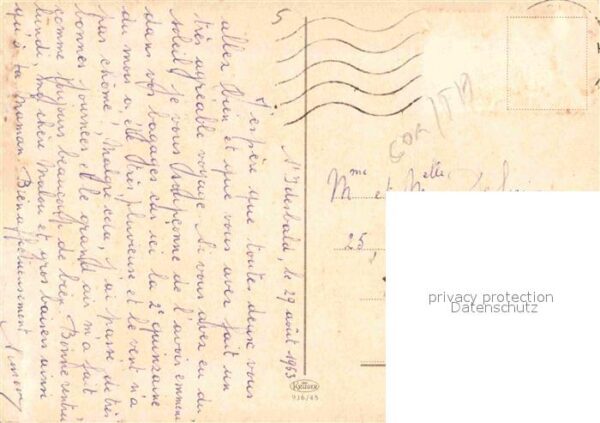 St Idesbald, le 29 août 1963
J'espère que toutes deux vous
allez bien et que vous avez fait un
très agréable voyage. Si vous avez eu du
soleil, je vous soupçonne de l'avoir emmené
dans vos bagages car ici la 2e quinzaine
du mois a été très pluvieuse et le vent n'a
pas chômé. Malgré cela, j'ai passé de très
bonnes journées et le grand air m'a fait
comme toujours beaucoup de bien. Bonne rentrée
lundi, ma chère Malou et gros baisers ainsi
qu'à ta maman. Bien affectueusement
Mme et Melle
25,
GOR/TH
KRÜGER
936/45
privacy protection
Datenschutz